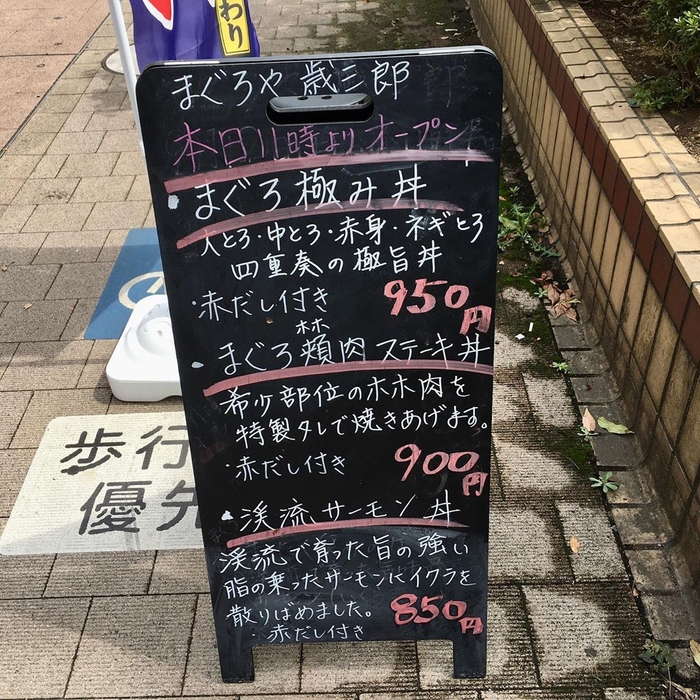 わり
まぐろや 歳三郎
本日11時よりオープン
まぐろ極み丼
大とろ・中とろ・赤身・ネギとろ
四重奏の極旨丼
・赤だし付き
950円
ホホ
・まぐろ頬肉ステーキ丼
希少部位のホホ肉を
特製タレで焼きあげます。
・赤だし付き
900円
・渓流サーモン丼
渓流で育った旨の強い
脂の乗ったサーモンにイクラを
散りばめました。
850円
・赤だし付き
歩行
優先